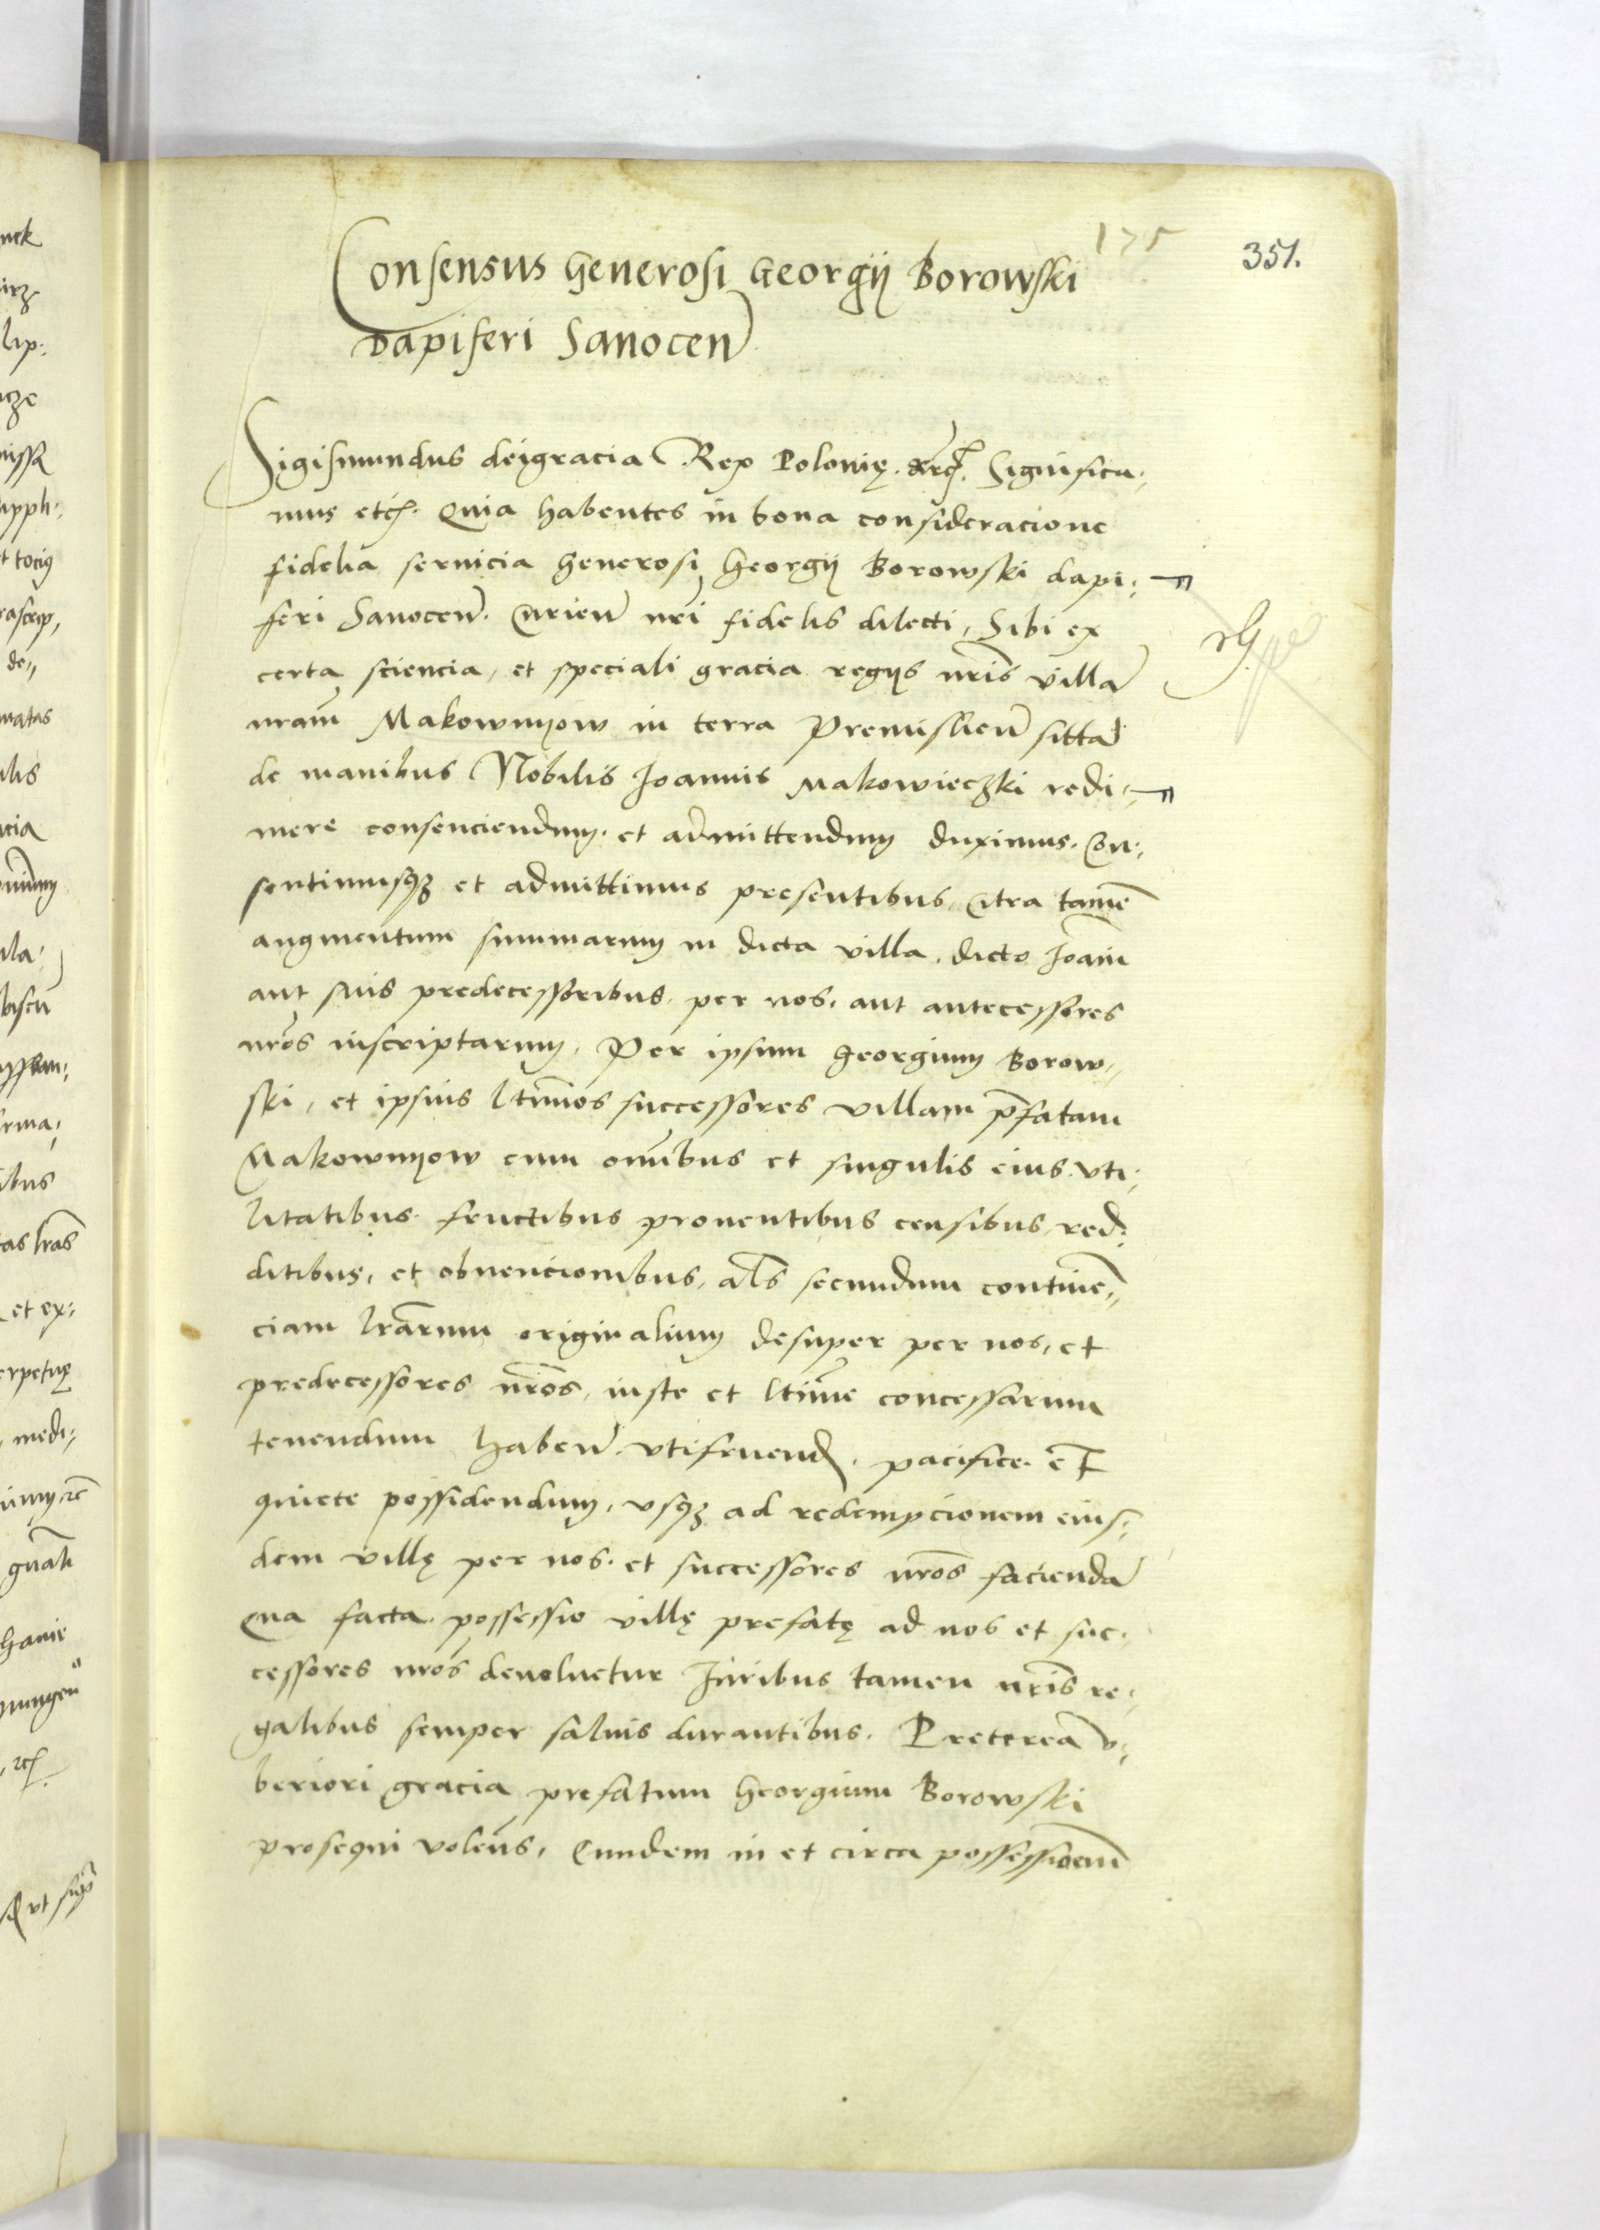 175
351.
Consensus generosi Georgij Borowski
Dapiferi Sanocen̄
Sigismundus deigracia Rex Polonię. Significa:,
mus etc. Quia habentes in bona consideracione
fidelia seruicia generosi Georgij Borowski dapi:,
feri Sanocen̄. Curien̄ nr̄i fidelis dilecti, Sibi ex
certa sciencia, et speciali gracia regijs nr̄is villā
nram̄ Makownyow in terra Premislien̄ sittā
de manibus Nobilis Joannis Makowieczki redi:,
mere consenciendum. et admittendum duximus. Con:,
sentimusq3 et admittimus presentibus, Citra tamē
augmentum summarum in dicta villa, dicto Joann̄i
aut suis predecessoribus, per nos, aut antecessores
nr̄os inscriptarum, Per ipsum Georgium Borow,,
ski, et ipsius ltimōs successores villam p̄fatam
Makownyow cum omnībus et singulis eius vti:,
litatibus fructibus prouentibus censibus red:,
ditibus, et obuencionibus, al̄s secundum continē,,
ciam lrārum originalium desuper per nos, et
predecessores nr̄os, iuste et ltimē concessarum
tenendum haben̄. vtifruend̄, pacifice. et
quiete possidendum, vsq3 ad redempcionem eius,,
dem villę per nos. et successores nr̄os faciendā
Qua facta possessio villę prefatę ad nos et suc:,
cessores nr̄os deuoluetur Juribus tamen nr̄is re:,
galibus semper saluis durantibus. Preterea v:,
beriori gracia prefatum Georgium Borowski
prosequi volens, Eundem in et circa possessioem̄